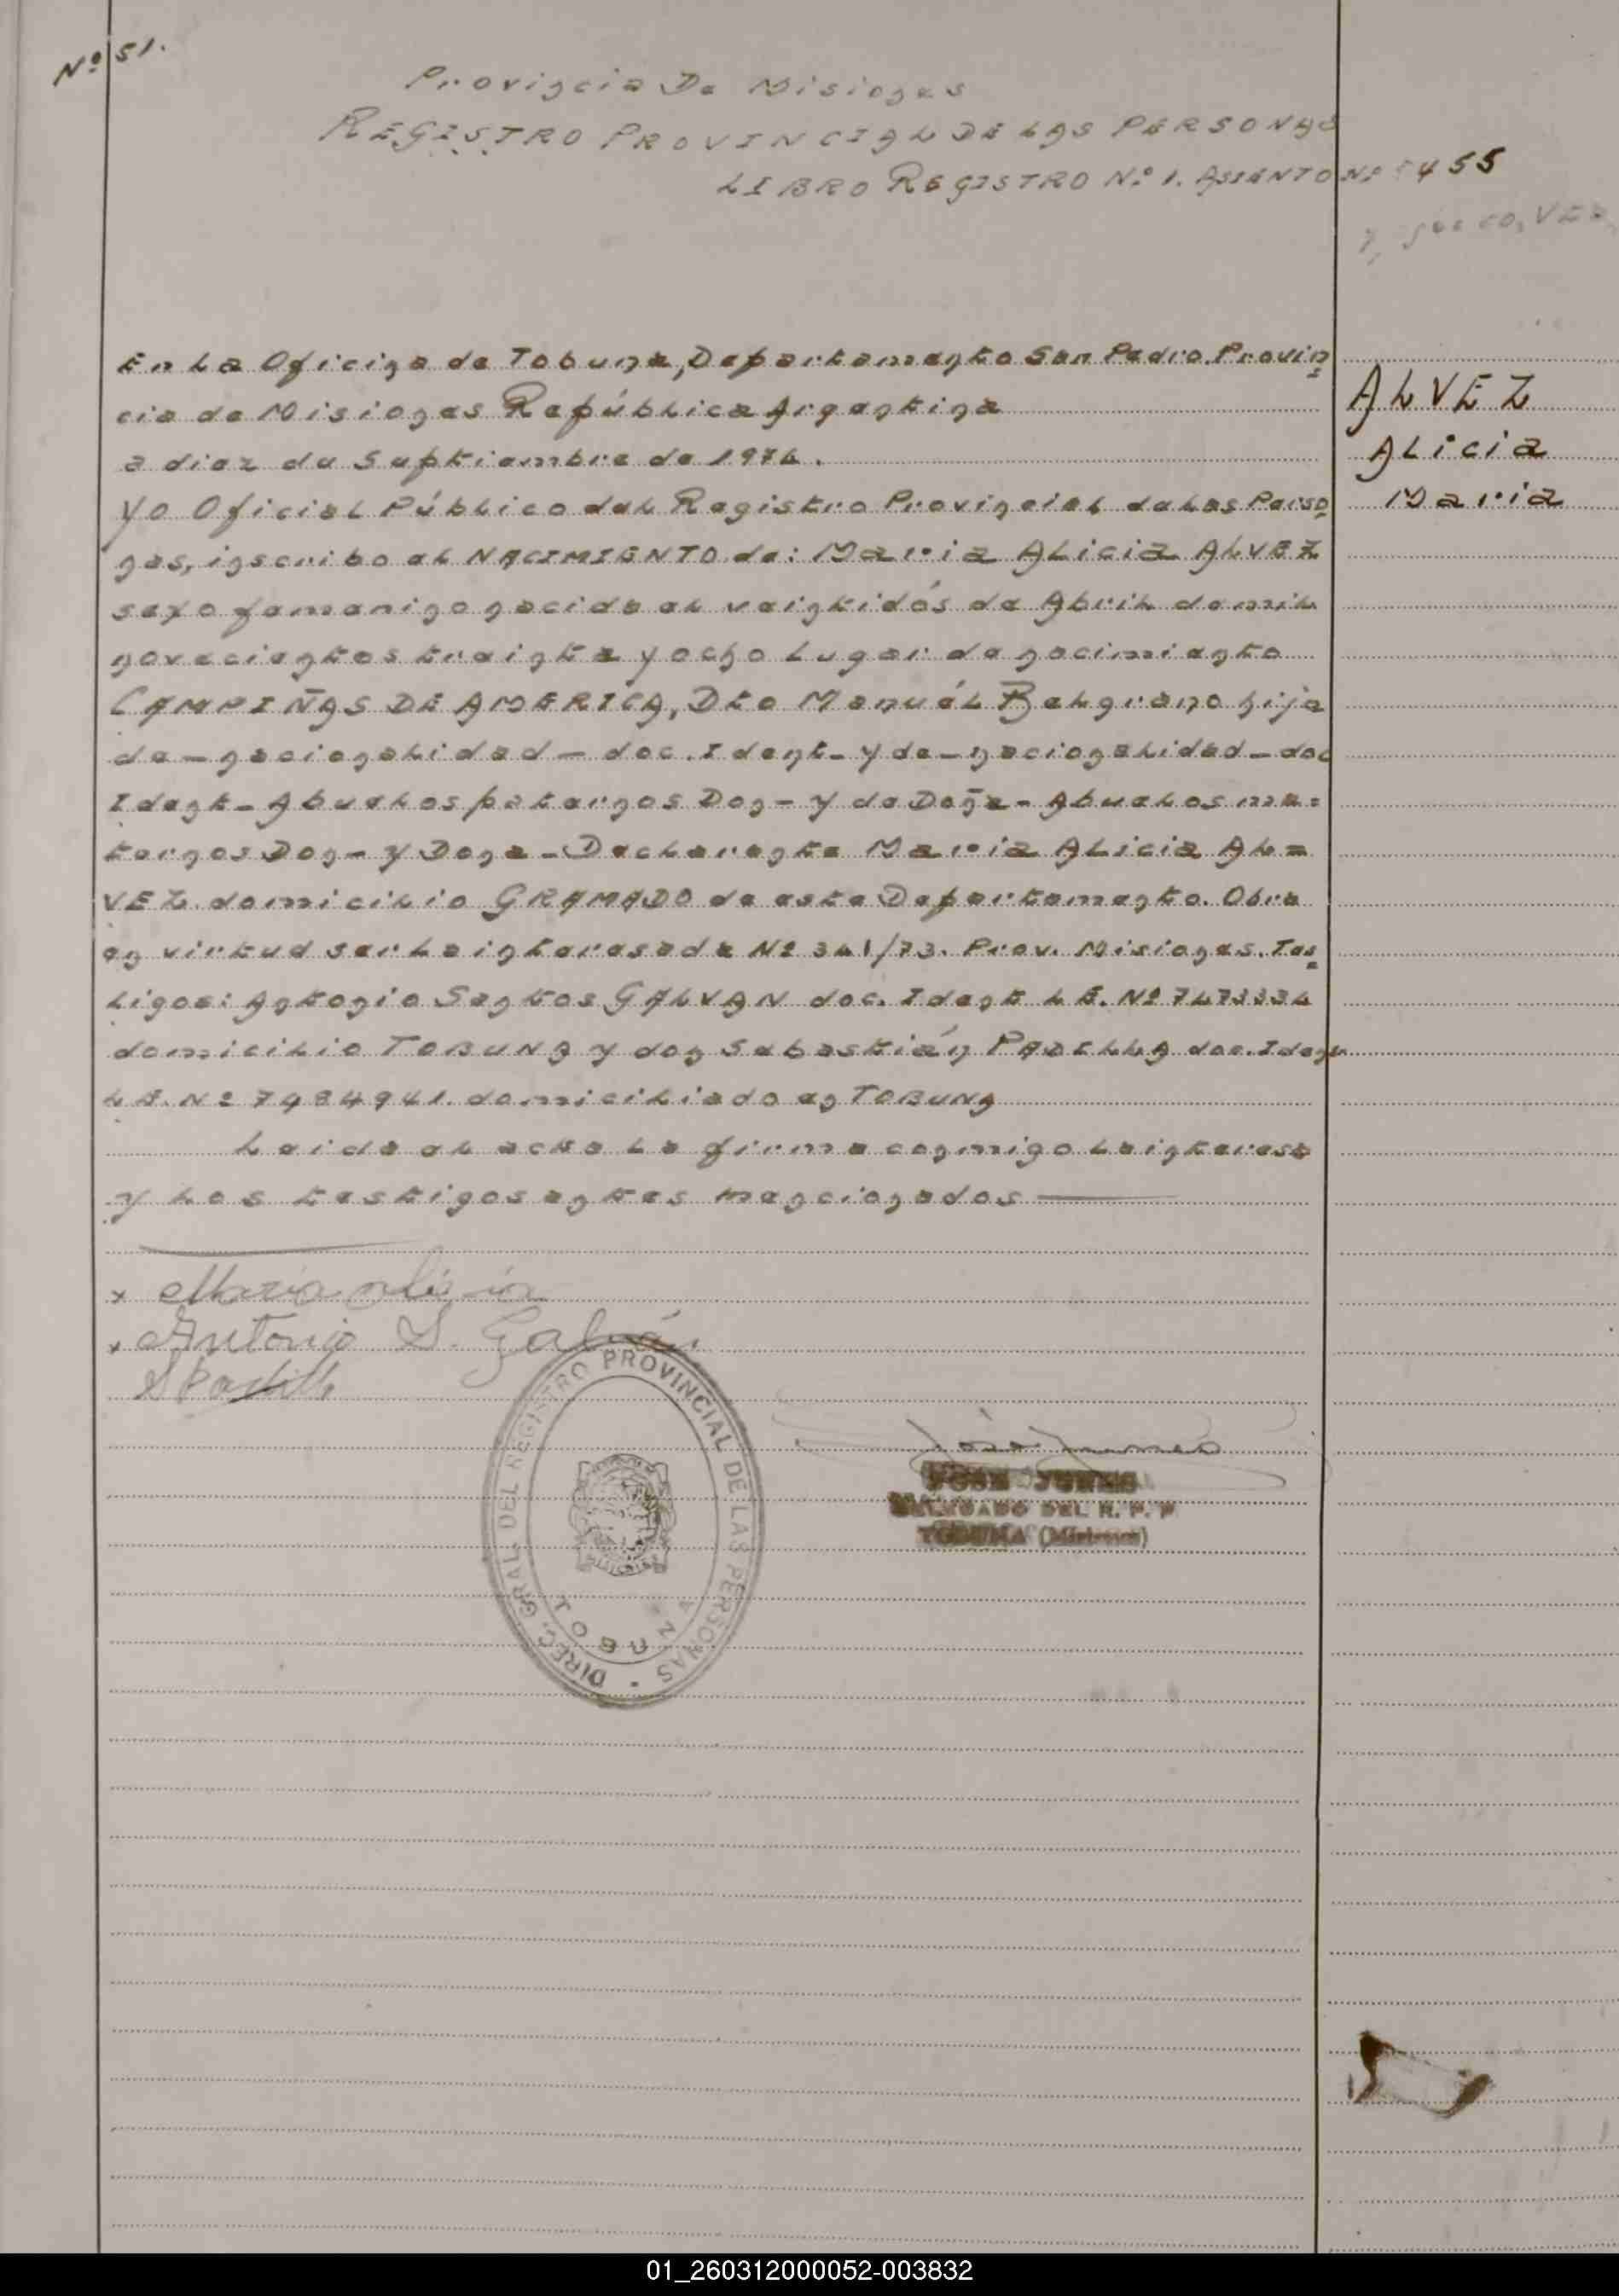 Nº 51.
Provincia De Misiones
REGISTRO PROVINCIAL DE LAS PERSONAS
LIBRO REGISTRO Nº 1. ASIENTO Nº 455
En La Oficina de Tobuna, Departamento San Pedro. Provin=
cia de Misiones República Argentina
a diez de Septiembre de 1974.
ALVEZ
ALicia
Maria
Yo Oficial Público del Registro Provincial de Las Perso=
nas, inscribo el NACIMIENTO de: Maria ALicia ALVEZ
sexo femenino nacida el veintidós de Abril de mil
novecientos treinta y ocho Lugar de nacimiento
CAMPIÑAS DE AMERICA, Dto Manuél Belgrano hija
de - nacionalidad - doc. Ident - y de - nacionalidad - doc
Ident - Abuelos paternos Don - y de Doña - Abuelos ma=
ternos Don - y Dona - Declarante Maria ALicia AL=
VEZ. domicilio GRAMADO de este Departamento. Obra
en virtud ser la interesada Nº 341/73. Prov. Misiones. Tes=
tigos: Antonio Santos GALVAN doc. Ident L E. Nº 7473334
domicilio TOBUNA y don Sebastián PADILLA doc. Ident
L E. Nº 7484941. domiciliado en TOBUNA
Leida el acta La firma conmigo La interesa
y Los testigos antes mencionados
x Maria Alicia
x Antonio S. Galván
S Padilla
José Junes
JOSE JUNES
DELEGADO DEL R. P. P
TOBUNA (Misiones)
DIREC. GRAL. DEL REGISTRO PROVINCIAL DE LAS PERSONAS
TOBUNA
01_260312000052-003832